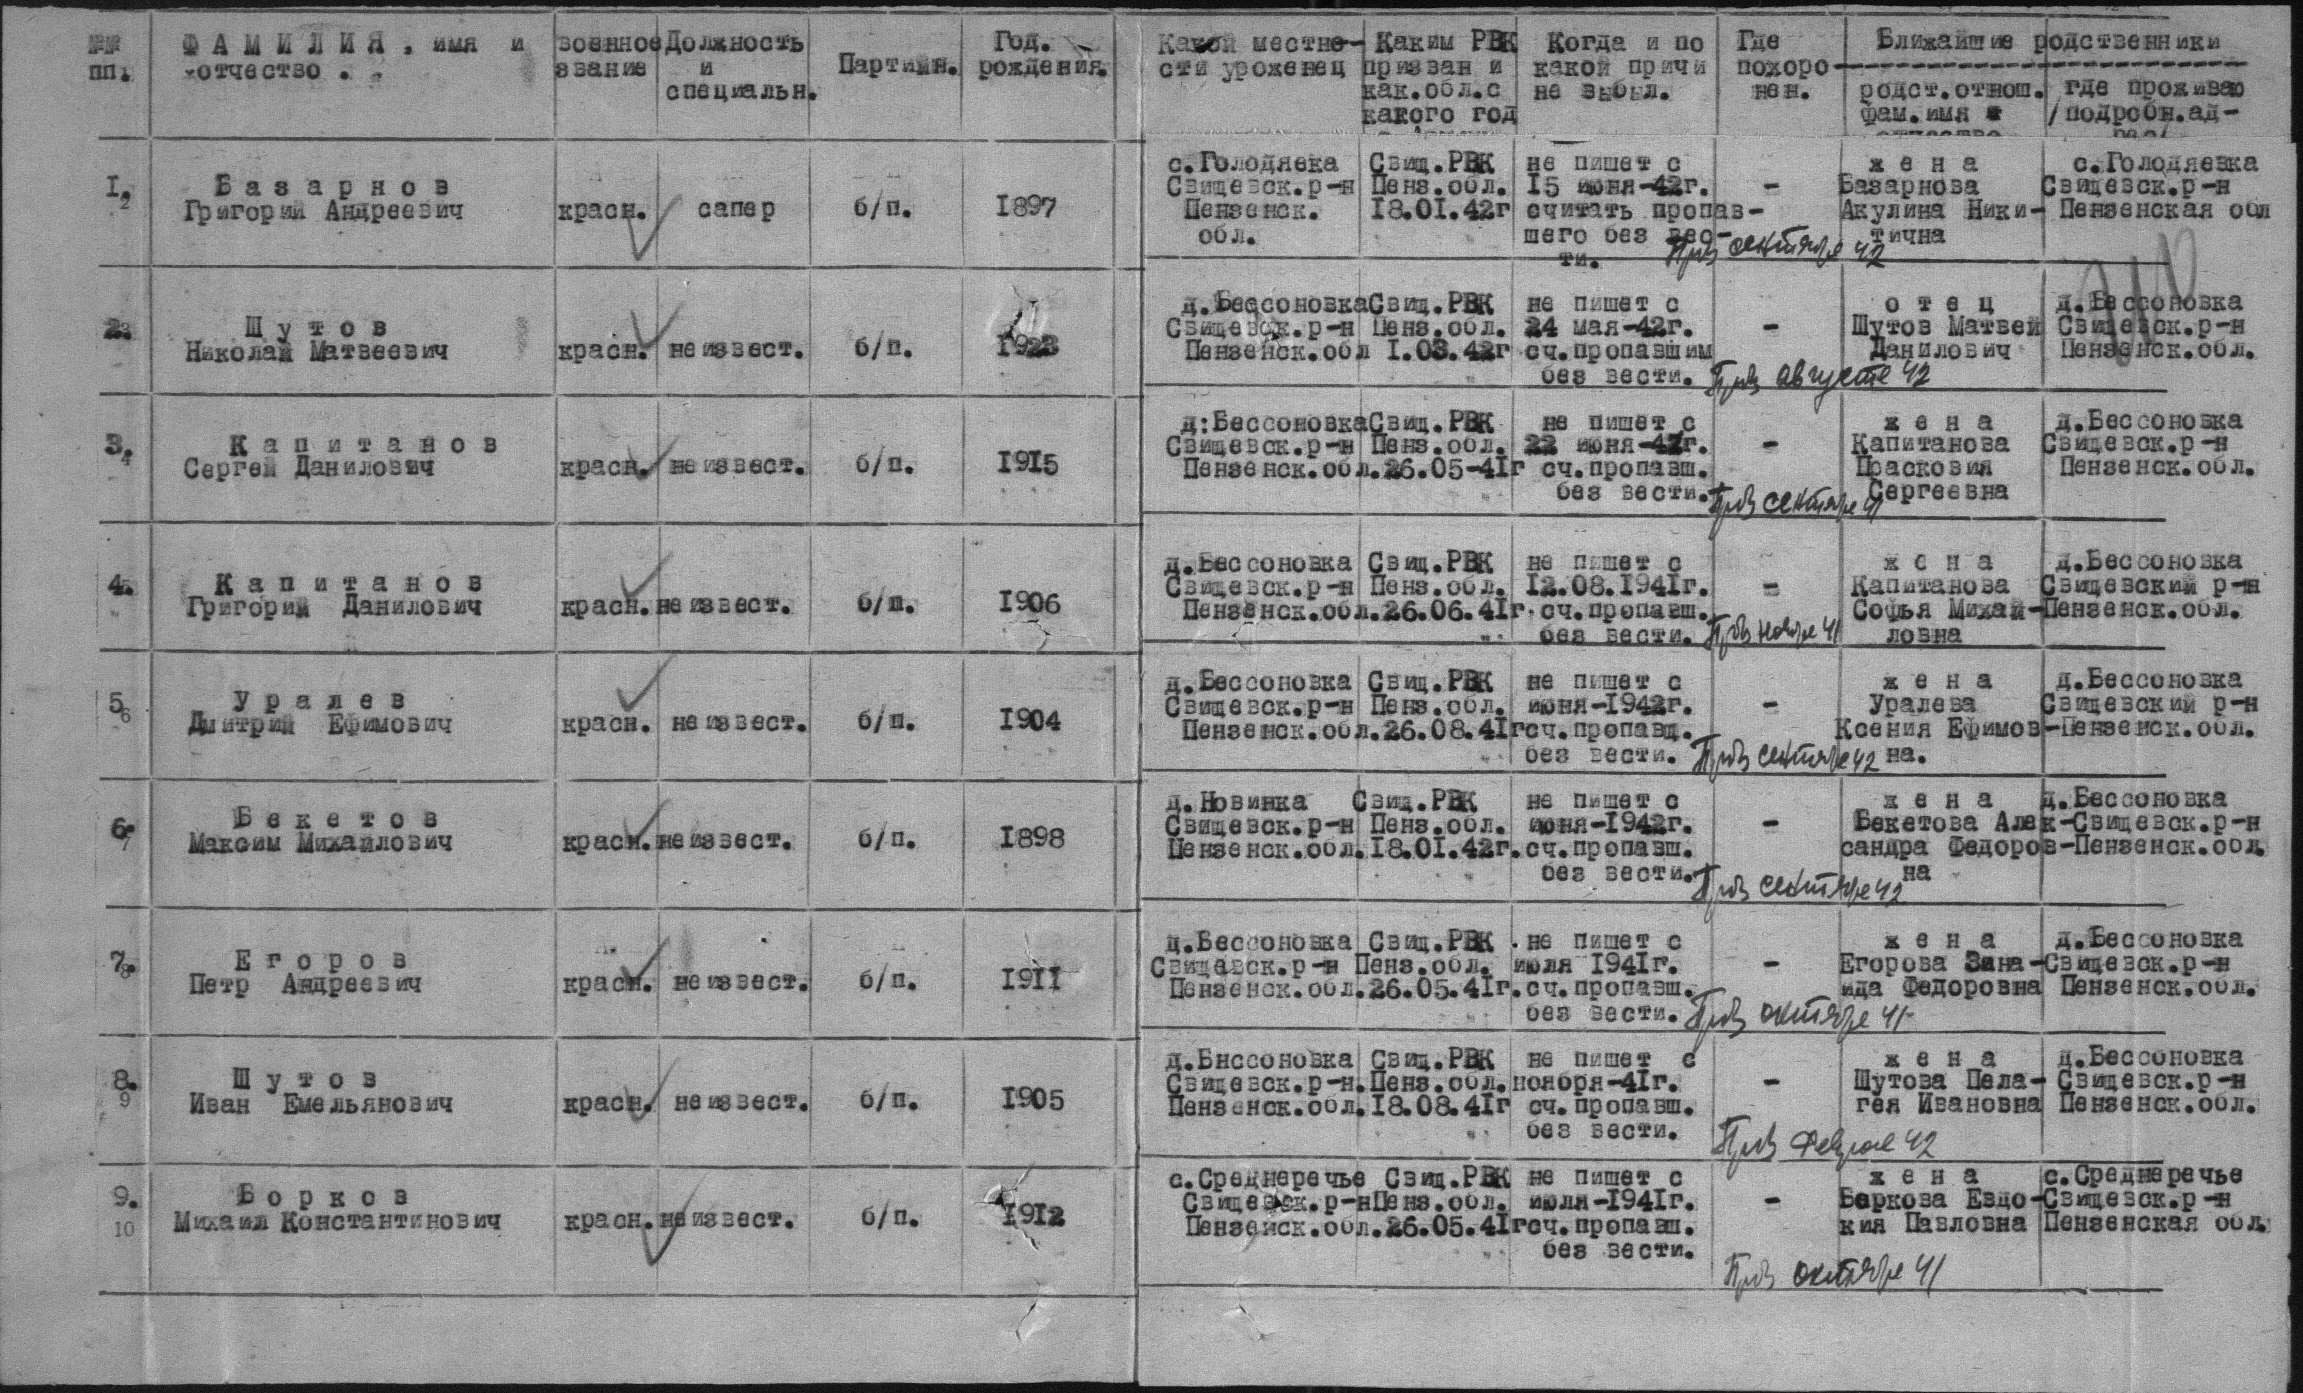 №№ пп.
ФАМИЛИЯ, имя и отчество.
военное звание
Должность и специальн.
Партийн.
Год. рождения.
Какой местно-сти уроженец
Каким РВК призван и как.обл.с какого год
Когда и по какой причи не выбыл.
Где похоро-нен.
Ближайшие родственники
родст.отнош. фам.имя и отчество
где проживаю /подробн.ад-рес/
1.
2
Базарнов
Григорий Андреевич
красн.
сапер
б/п.
1897
с.Голодяека
Свищевск.р-н
Пензенск.
обл.
Свищ.РВК
Пенз.обл.
18.01.42г
не пишет с
15 июня-42г.
считать пропав-
шего без вес-
ти.
Пр в сентябре 42
-
жена
Базарнова
Акулина Ники-
тична
с.Голодяевка
Свищевск.р-н
Пензенская обл
2.
3
Шутов
Николай Матвеевич
красн.
неизвест.
б/п.
1923
д.Бессоновка
Свищевск.р-н
Пензенск.обл
Свищ.РВК
Пенз.обл.
1.03.42г
не пишет с
24 мая-42г.
сч.пропавшим
без вести.
Пр в августе 42
-
отец
Шутов Матвей
Данилович
д.Бессоновка
Свищевск.р-н
Пензенск.обл.
3.
4
Капитанов
Сергей Данилович
красн.
неизвест.
б/п.
1915
д:Бессоновка
Свищевск.р-н
Пензенск.обл.
Свищ.РВК
Пенз.обл.
26.05-41г
не пишет с
22 июня-41г.
сч.пропавш.
без вести.
Пр в сентябре 41
-
жена
Капитанова
Прасковия
Сергеевна
д.Бессоновка
Свищевск.р-н
Пензенск.обл.
4.
Капитанов
Григорий Данилович
красн.
неизвест.
б/п.
1906
д.Бессоновка
Свищевск.р-н
Пензенск.обл.
Свищ.РВК
Пенз.обл.
26.06.41г.
не пишет с
12.08.1941г.
сч.пропавш.
без вести.
Пр в ноябре 41
-
жена
Капитанова
Софья Михай-
ловна
д.Бессоновка
Свищевский р-н
Пензенск.обл.
5
6
Уралев
Дмитрий Ефимович
красн.
неизвест.
б/п.
1904
д.Бессоновка
Свищевск.р-н
Пензенск.обл.
Свищ.РВК
Пенз.обл.
26.08.41г
не пишет с
июня-1942г.
сч.пропавш.
без вести.
Пр в сентябре 42
-
жена
Уралева
Ксения Ефимов-
на.
д.Бессоновка
Свищевский р-н
Пензенск.обл.
6.
7
Бекетов
Максим Михайлович
красн.
неизвест.
б/п.
1898
д.Новинка
Свищевск.р-н
Пензенск.обл.
Свищ.РВК
Пенз.обл.
18.01.42г.
не пишет с
июня-1942г.
сч.пропавш.
без вести.
Пр в сентябре 42
-
жена
Бекетова Алек-
сандра Федоров-
на
д.Бессоновка
Свищевск.р-н
Пензенск.обл.
7.
8
Егоров
Петр Андреевич
красн.
неизвест.
б/п.
1911
д.Бессоновка
Свищевск.р-н
Пензенск.обл.
Свищ.РВК
Пенз.обл.
26.05.41г.
не пишет с
июля 1941г.
сч.пропавш.
без вести.
Пр в октябре 41
-
жена
Егорова Зина-
ида Федоровна
д.Бессоновка
Свищевск.р-н
Пензенск.обл.
8.
9
Шутов
Иван Емельянович
красн.
неизвест.
б/п.
1905
д.Бнссоновка
Свищевск.р-н.
Пензенск.обл.
Свищ.РВК
Пенз.обл.
18.08.41г
не пишет с
ноября-41г.
сч.пропавш.
без вести.
Пр в феврале 42
-
жена
Шутова Пела-
гея Ивановна
д.Бессоновка
Свищевск.р-н
Пензенск.обл.
9.
10
Борков
Михаил Константинович
красн.
неизвест.
б/п.
1912
с.Среднеречье
Свищевск.р-н
Пензенск.обл.
Свищ.РВК
Пенз.обл.
26.05.41г
не пишет с
июля-1941г.
сч.пропавш.
без вести.
Пр в октябре 41
-
жена
Боркова Евдо-
кия Павловна
с.Среднеречье
Свищевск.р-н
Пензенская обл.